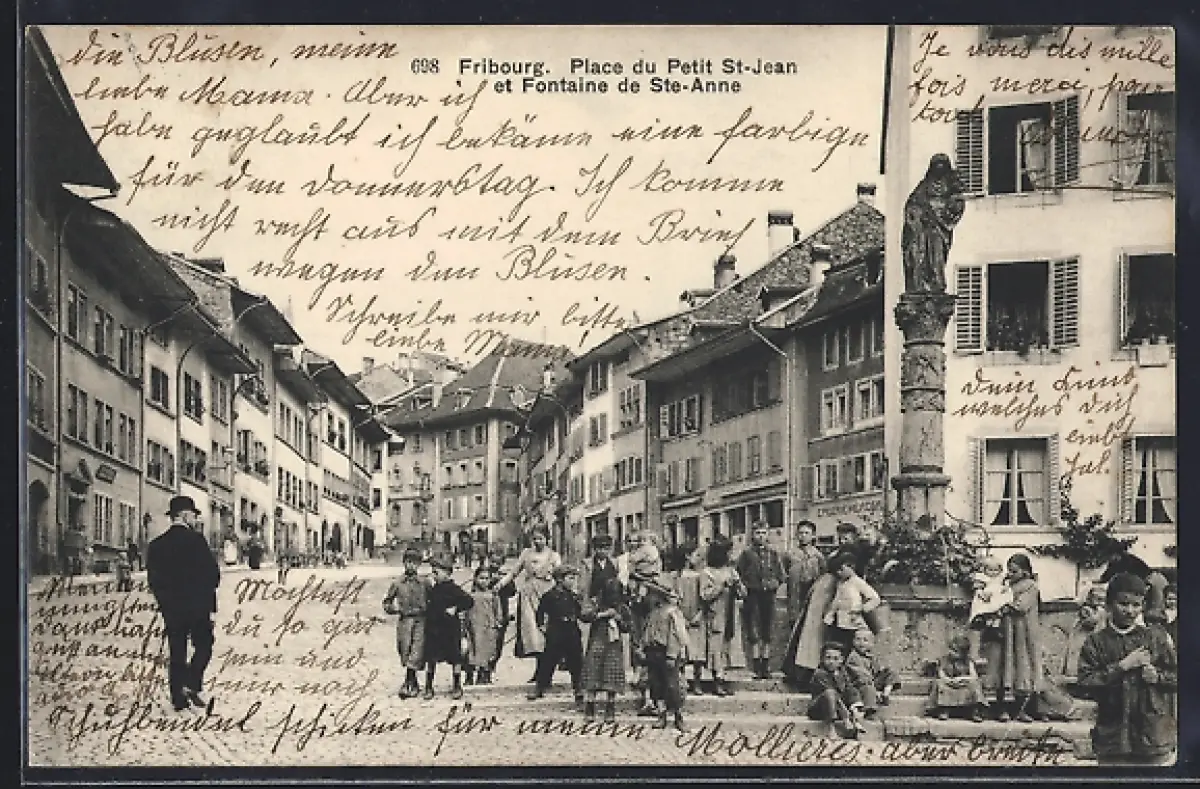 698 Fribourg. Place du Petit St-Jean
et Fontaine de Ste-Anne
die Blusen, meine
liebe Mama. Aber ich
habe geglaubt ich bekäme eine farbige
für den Donnerstag. Ich komme
nicht recht aus mit dem Brief
wegen den Blusen.
Schreibe mir bitte
liebe Mama
Je vous dis mille
fois merci, pour
tout
Dein Kind
welches dich
liebt
Möchtest
du so gut
sein und
mir noch
Schuhbendel schicken für meine Mollieres. aber breite